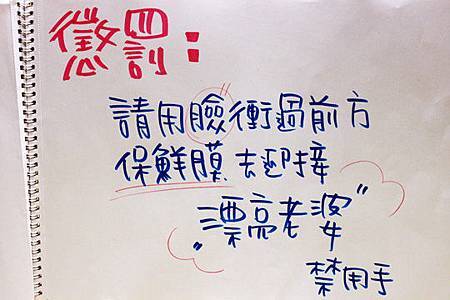 懲罰：
請用臉衝過前方
保鮮膜去迎接
"漂亮老婆"
禁用手